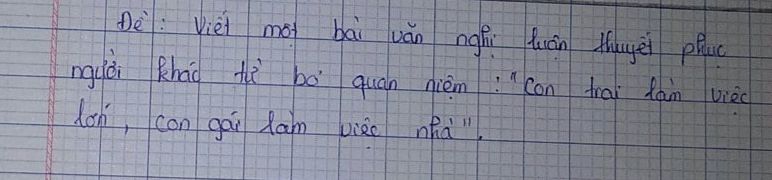 Đề: Viết một bài văn nghị luận thuyết phục
người khác từ bỏ quan niệm: "Con trai làm việc
lớn, con gái làm việc nhà".